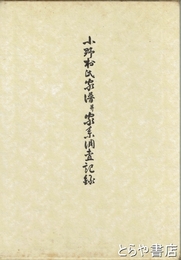 小野松氏家譜并家系調査記録
とらや書店